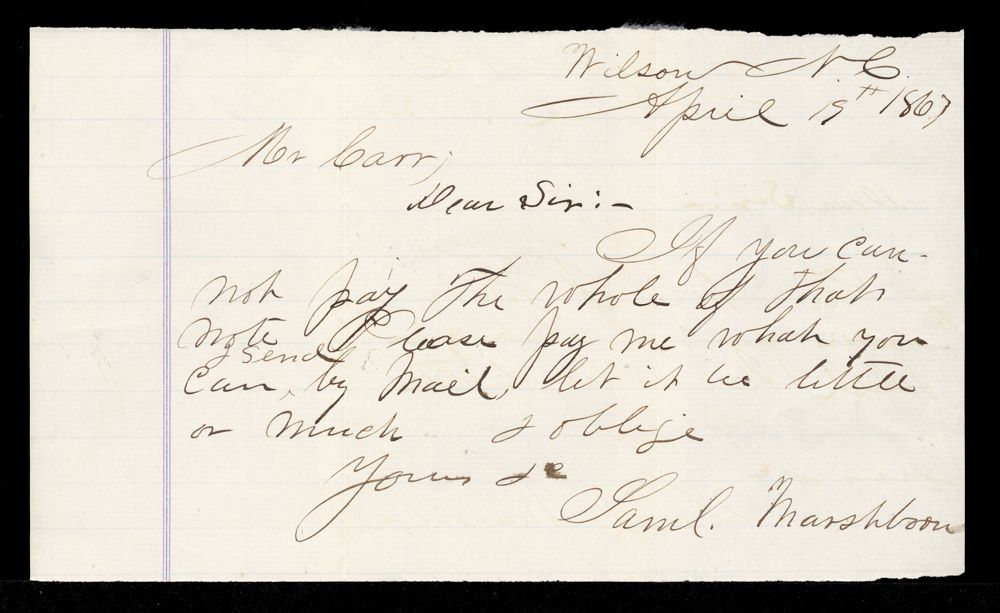 Wilson N. C.
April 19th 1867
Mr Carr,
Dear Sir:-
If you can-
not pay the whole of that
note Please pay me what you
& send
can, by Mail, let it be little
or much & oblige
Yours &c
Saml. Marshborn